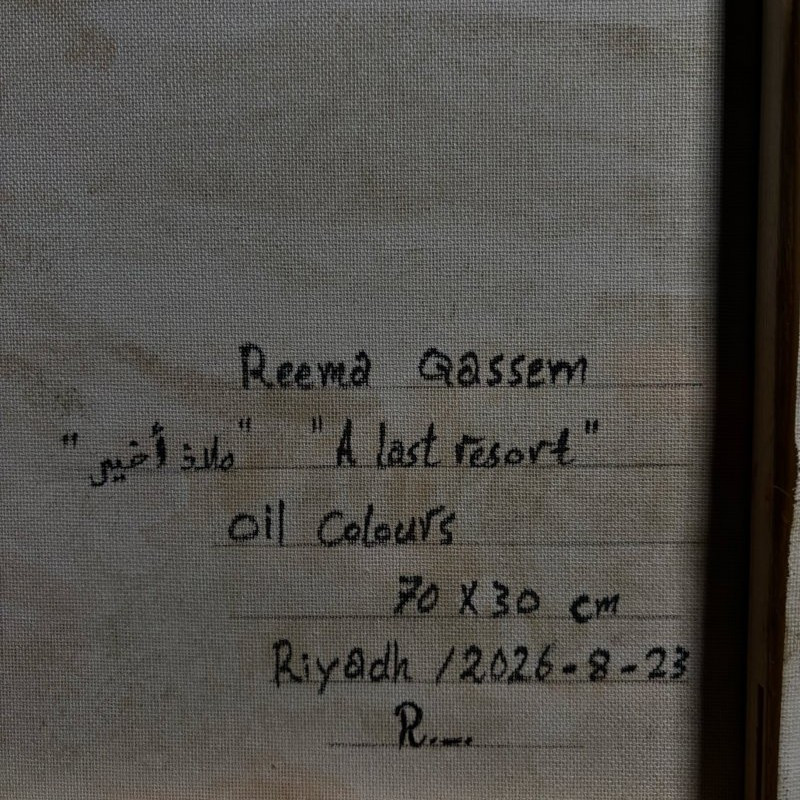 Reema Qassem
"ملاذ أخير" "A last resort"
Oil Colours
70 X 30 cm
Riyadh / 2026-8-23
R....